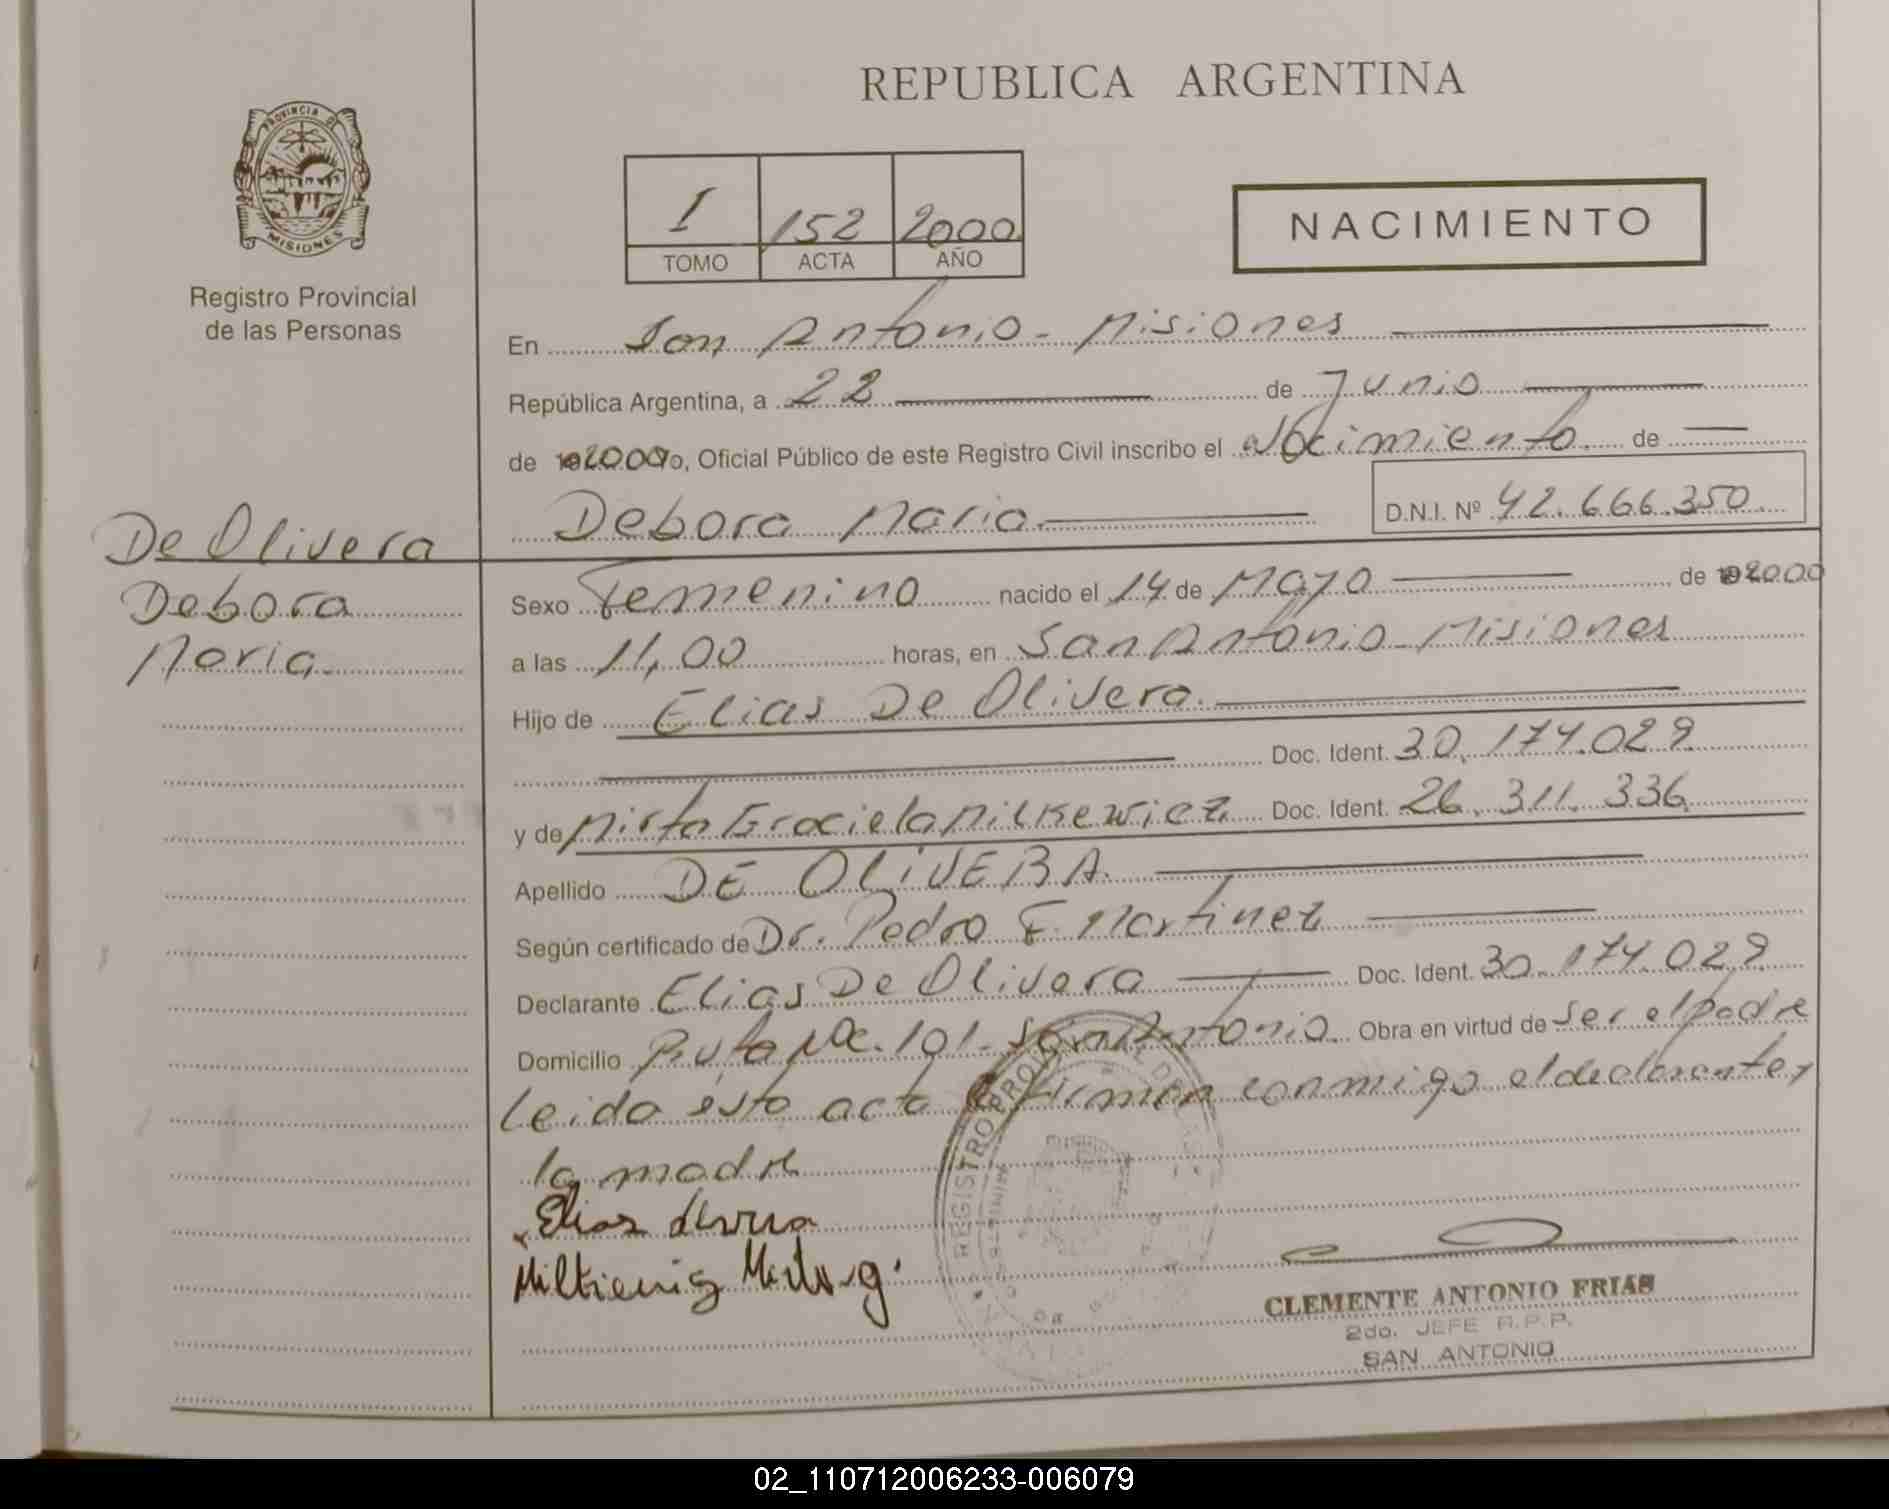 REPUBLICA ARGENTINA
PROVINCIA DE
MISIONES
Registro Provincial
de las Personas
I 152 2000
TOMO ACTA AÑO
NACIMIENTO
En San Antonio - Misiones
República Argentina, a 22 de Junio
de 2000 yo, Oficial Público de este Registro Civil inscribo el Nacimiento de
Debora Maria D.N.I. Nº 42.666.350
De Olivera
Debora
Maria
Sexo Femenino nacido el 14 de Mayo de 2000
a las 11,00 horas, en San Antonio - Misiones
Hijo de Elias De Olivera
Doc. Ident. 30.174.029
y de Mirta Graciela Milkewicz Doc. Ident. 26.311.336
Apellido DE OLIVERA
Según certificado de Dr. Pedro F. Martinez
Declarante Elias De Olivera Doc. Ident. 30.174.029
Domicilio Ruta Nac. 101 - San Antonio Obra en virtud de ser el padre
Leida esta acta firman conmigo el declarante y
la madre
REGISTRO PROVINCIAL DE LAS
Elias
CLEMENTE ANTONIO FRIAS
2do. JEFE R.P.P.
SAN ANTONIO
02_110712006233-006079